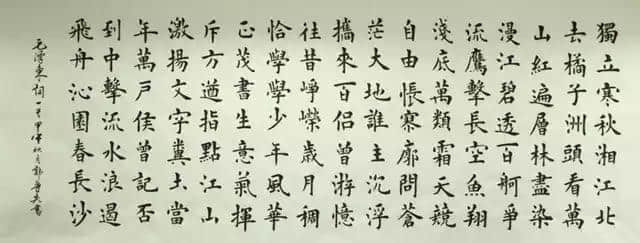 獨立寒秋湘江北
去橘子洲頭看萬
山紅遍層林盡染
漫江碧透百舸爭
流鷹擊長空魚翔
淺底萬類霜天競
自由悵寥廓問蒼
茫大地誰主沉浮
攜來百侶曾游憶
往昔崢嶸歲月稠
恰學學少年風華
正茂書生意氣揮
斥方遒指點江山
激揚文字糞土當
年萬戶侯曾記否
到中擊流水浪遏
飛舟沁園春長沙
毛澤東詞一首甲午秋月郭書